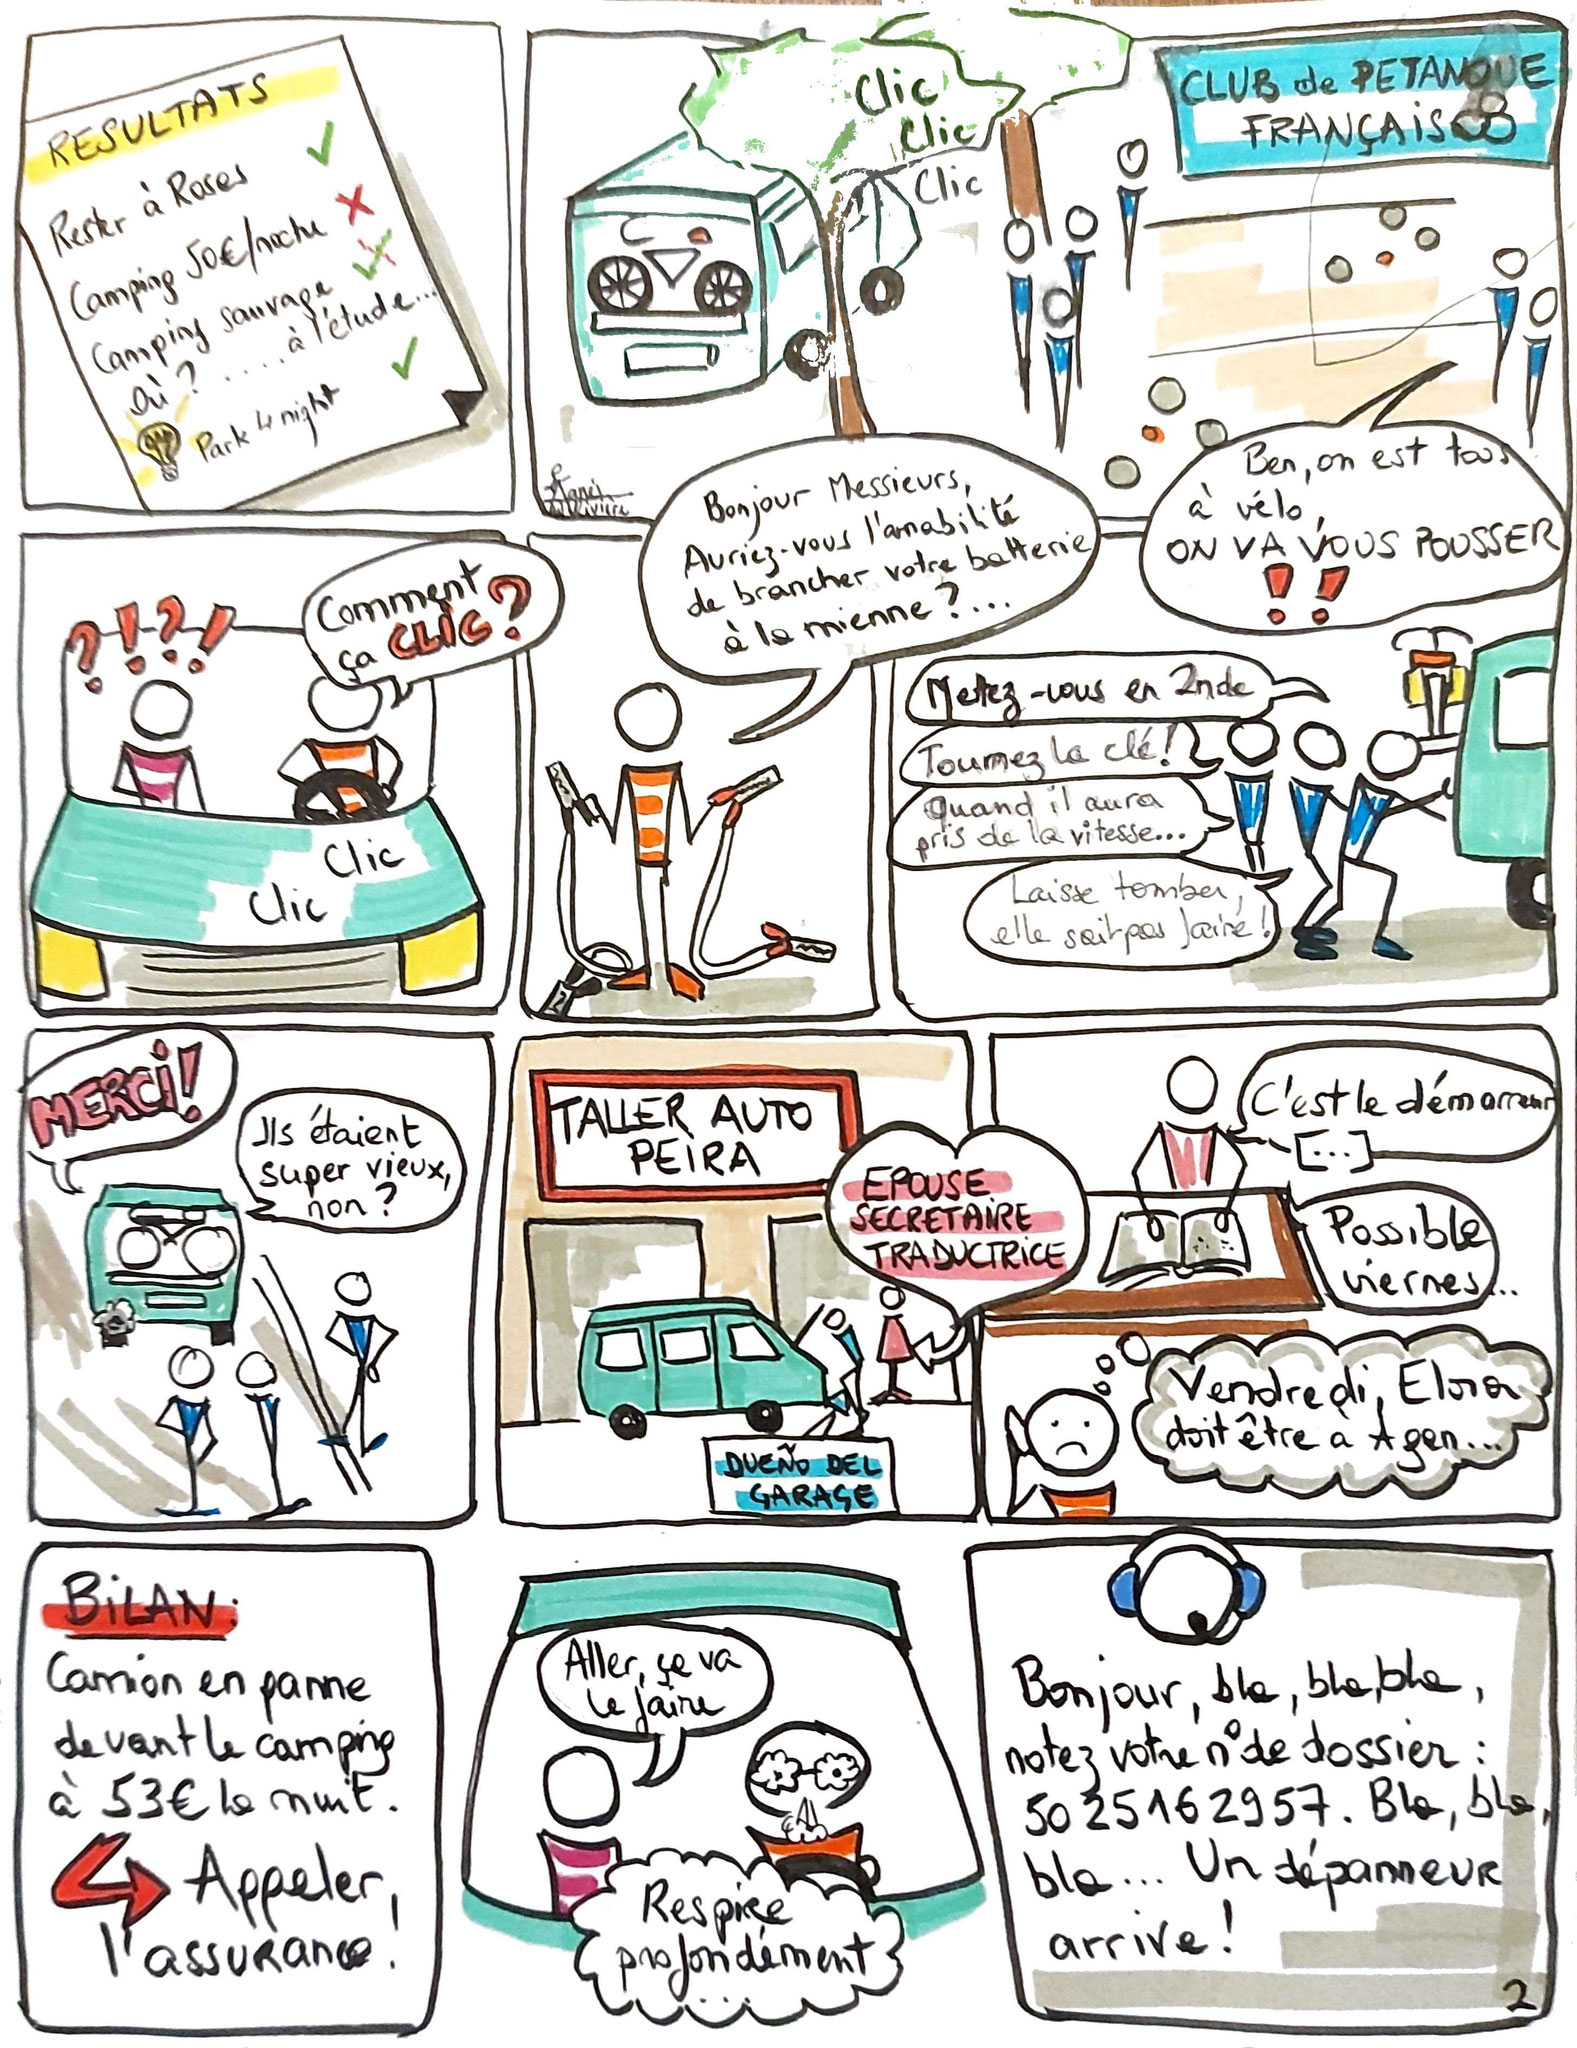 RESULTATS
Rester à Roses
Camping 50€/noche
Camping sauvage
Où ? ..... à l'étude...
Park 4 night
Clic
Clic
Clic
CLUB de PETANQUE
FRANÇAIS
Bonjour Messieurs,
Auriez-vous l'amabilité
de brancher votre batterie
à la mienne ?...
Ben, on est tous
à vélo,
ON VA VOUS POUSSER
!!
?!?!
Comment
ça CLIC?
Clic
Clic
Mettez-vous en 2nde
Tournez la clé!
Quand il aura
pris de la vitesse...
Laisse tomber,
elle sait pas faire !
MERCI!
Ils étaient
super vieux,
non ?
TALLER AUTO
PEIRA
EPOUSE
SECRETAIRE
TRADUCTRICE
DUEÑO DEL
GARAGE
C'est le démarreur
[...]
Possible
viernes...
Vendredi,
doit être à Agen...
BILAN:
Camion en panne
devant le camping
à 53€ la nuit.
Appeler
l'assurance!
Aller, ça va
le faire
Respire
profondément
...
Bonjour, bla, bla, bla,
notez votre n° de dossier :
5025162957. Bla, bla,
bla... Un dépanneur
arrive !
2